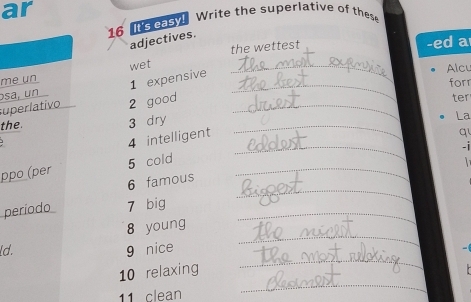 ar
16 It's easy! Write the superlative of these
adjectives.
wet the wettest
1 expensive the most expensive
2 good the best
3 dry dryest
4 intelligent
5 cold coldest
6 famous
7 big Biggest
8 young
9 nice the nicest
10 relaxing the most relaxing
11 clean cleannest
me un
osa, un
superlativo
the.
ppo (per
periodo
ld.
-ed a
Alcu
forr
ter
La
q
-i